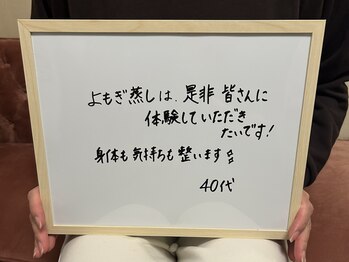 よもぎ蒸しは、是非 皆さんに
体験していただき
たいです!
身体も気持ちも整います
40代